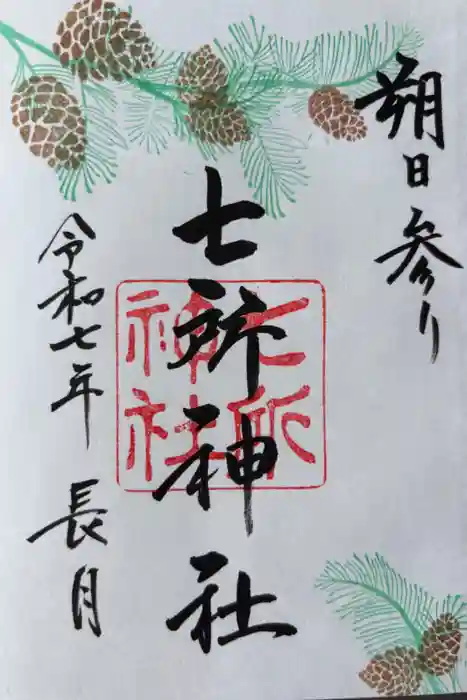 朔日参り
七所神社
七所
神社
令和七年
長月